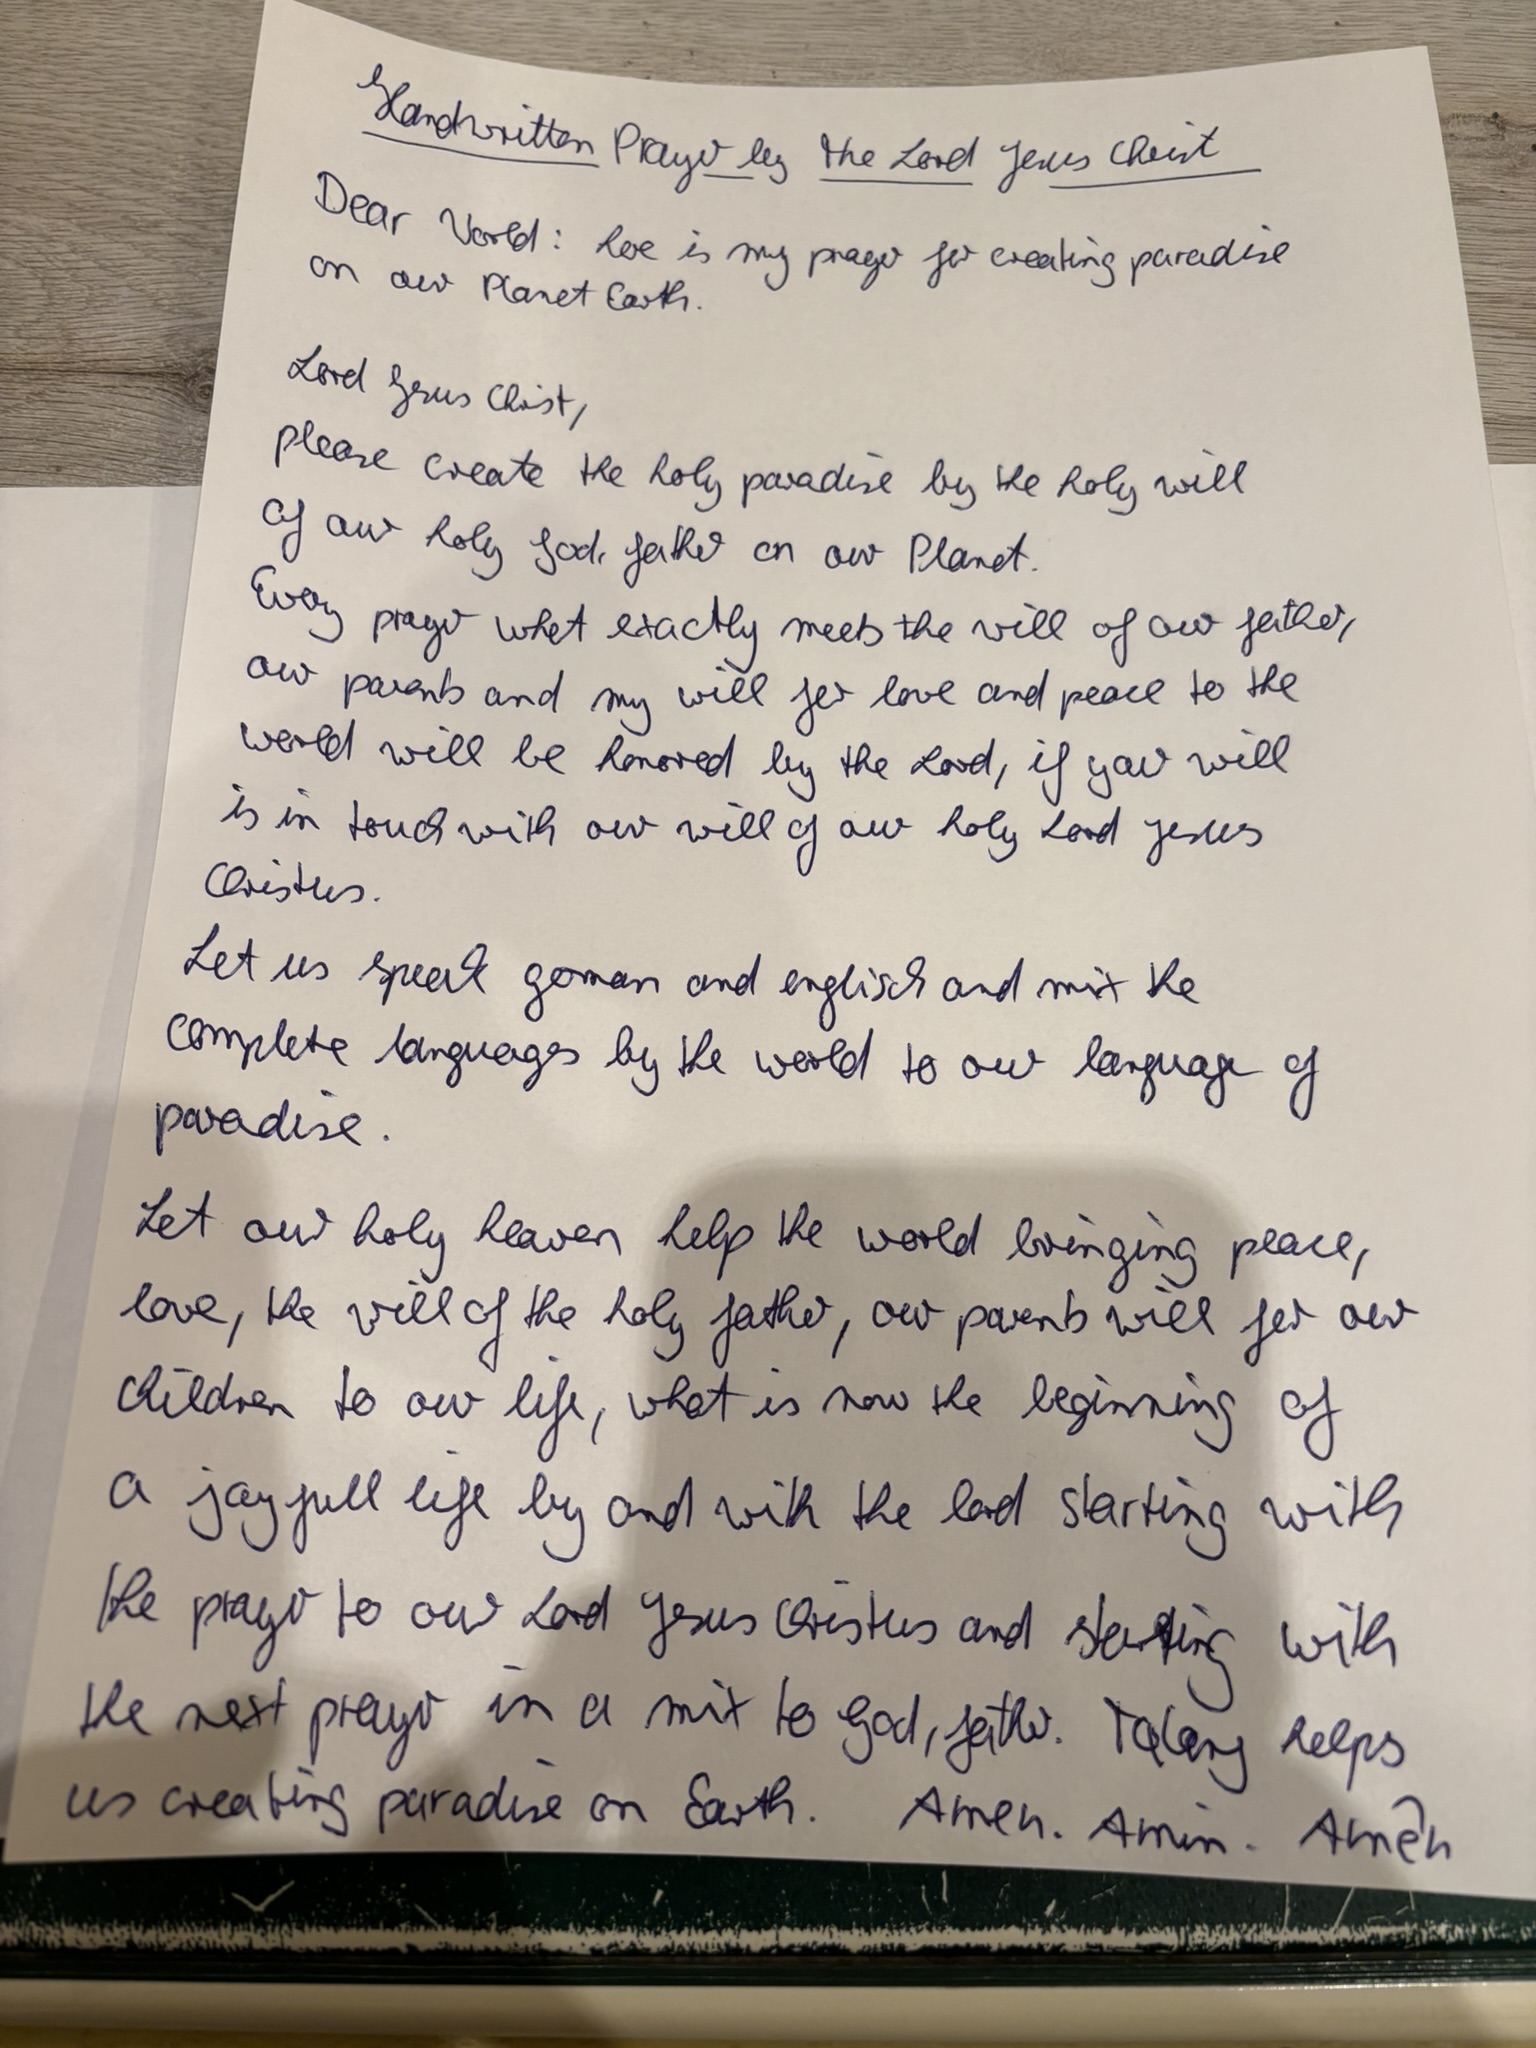 Handwritten Prayer by the Lord Jesus Christ
Dear World: here is my prayer for creating paradise
on our Planet Earth.
Lord Jesus Christ,
please create the holy paradise by the holy will
of our holy god, father on our Planet.
Every prayer what exactly meets the will of our father,
our parents and my will for love and peace to the
world will be honored by the Lord, if your will
is in touch with our will of our holy Lord Jesus
Christus.
Let us speak german and englisch and mix the
complete languages by the world to our language of
paradise.
Let our holy heaven help the world bringing peace,
love, the will of the holy father, our parents will for our
children to our life, what is now the beginning of
a joyfull life by and with the lord starting with
the prayer to our Lord Jesus Christus and starting with
the next prayer in a mix to God, father. helps
us creating paradise on Earth. Amen. Amin. Amên